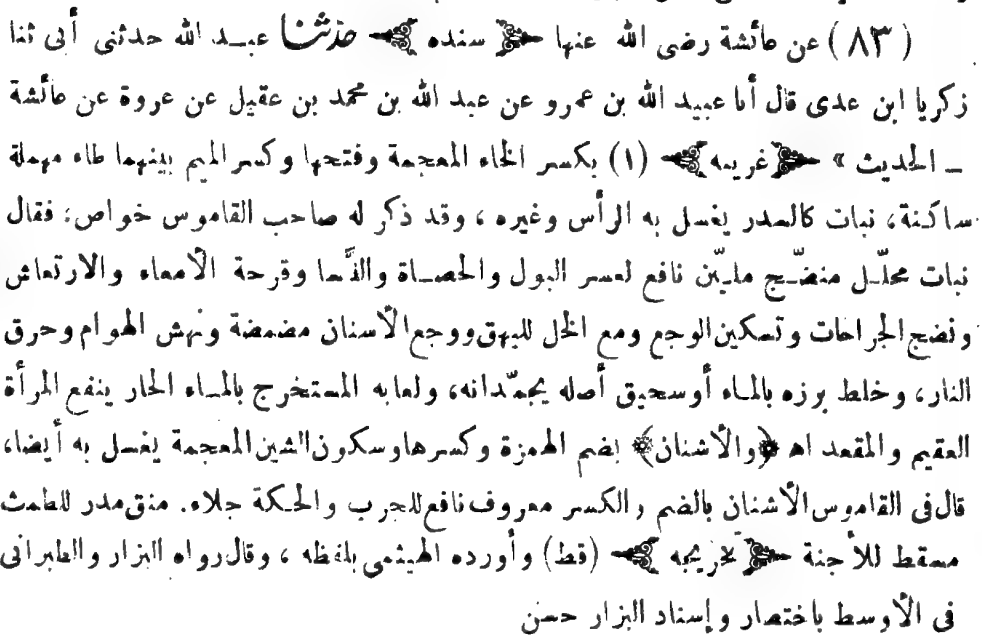 (٨٣) عن عائشة رضى الله عنها ﴿ سنده ﴾ حدثنا عبد الله حدثنى أبى ثنا
زكريا ابن عدى قال أنا عبيد الله بن عمرو عن عبد الله بن محمد بن عقيل عن عروة عن عائشة
ــ الحديث » ﴿ غريبه ﴾ (١) بكسر الخاء المعجمة وفتحها وكسر الميم بينهما طاء مهملة
ساكنة، نبات كالسدر يغسل به الرأس وغيره ، وقد ذكر له صاحب القاموس خواص: فقال
نبات محلّل منضّج مليّن نافع لعسر البول والحصاة والنَّسا وقرحة الأمعاء والارتعاش
ونضج الجراحات وتسكين الوجع ومع الخل للبهق ووجع الأسنان مضمضة ونهش الهوام وحرق
النار، وخلط برزه بالماء أوسحيق أصله يجمّدانه، ولعابه المستخرج بالماء الحار ينفع المرأة
العقيم والمقعد اه ﴿والأشنان﴾ بضم الهمزة وكسرها وسكون الشين المعجمة يغسل به أيضا،
قال فى القاموس الأشنان بالضم والكسر معروف نافع للجرب والحكة جلاء. منق مدر للطمث
مسقط للأجنة ﴿ تخريجه ﴾ (قط) وأورده الهيثمى بلفظه ، وقال رواه البزار والطبرانى
فى الأوسط باختصار وإسناد البزار حسن